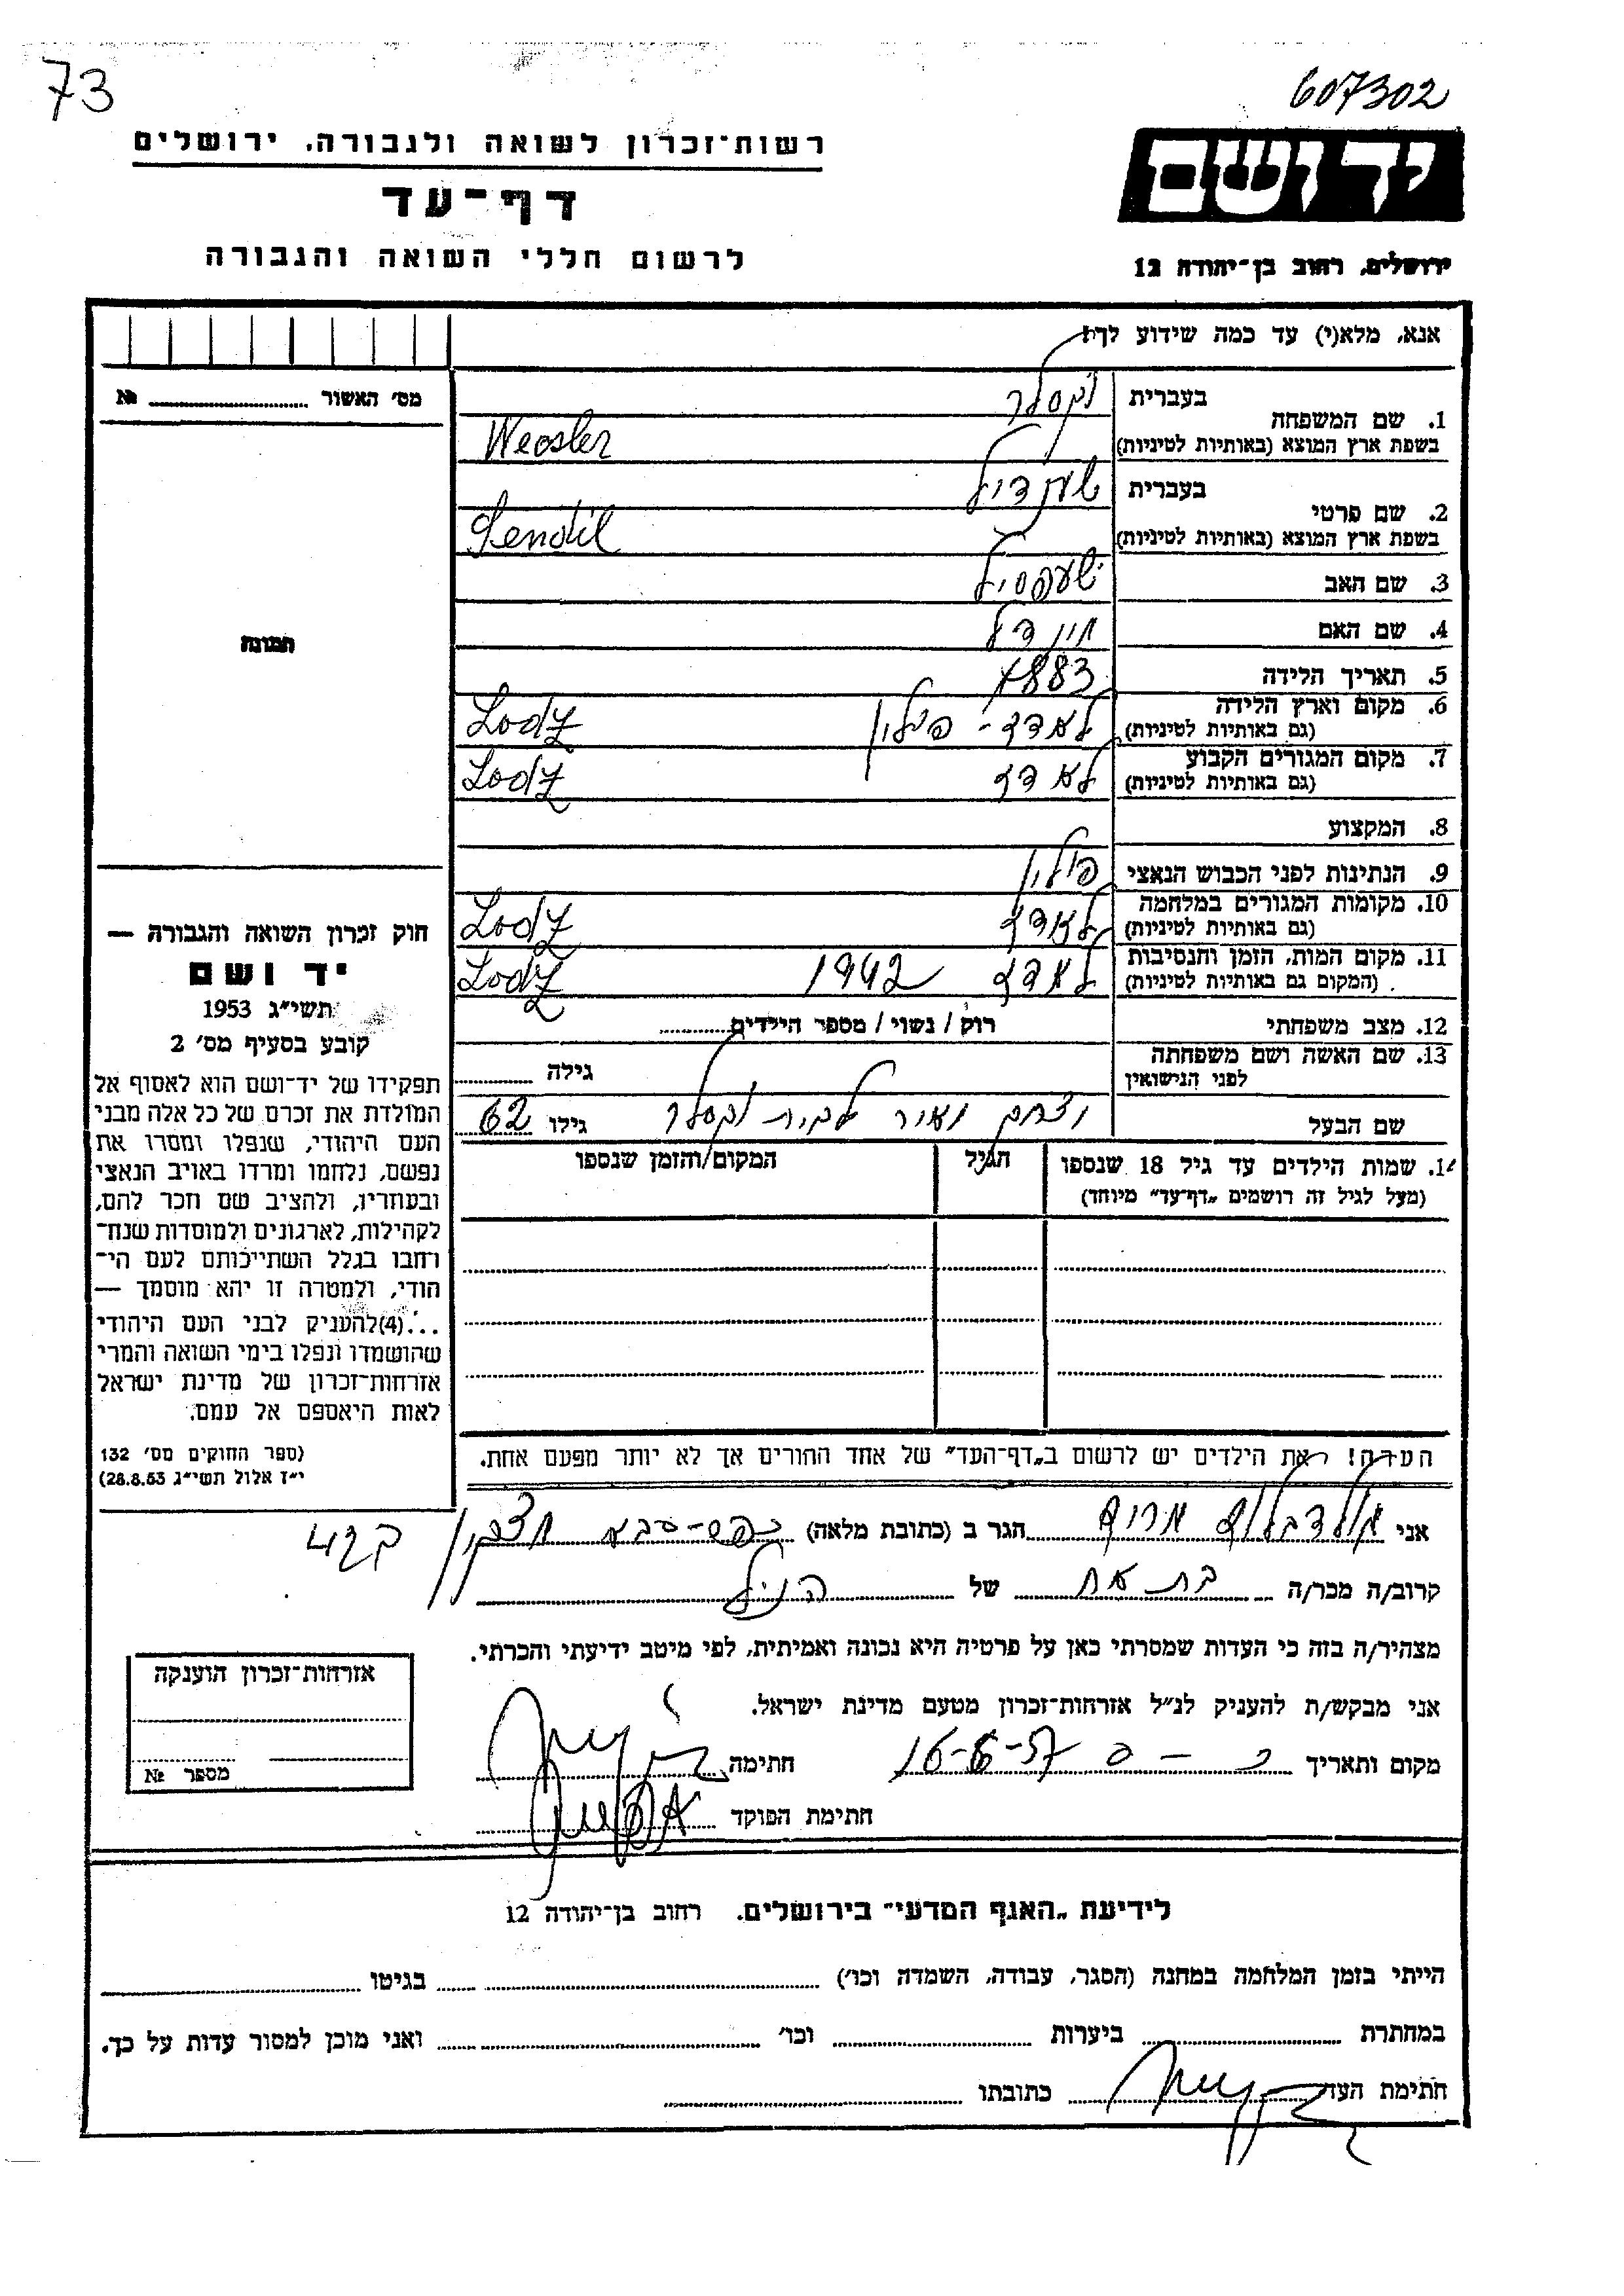 73
607302
רשות־זכרון לשואה ולגבורה, ירושלים
דף־עד
לרשום חללי השואה והגבורה
יד ושם
ירושלים, רחוב בן־יהודה 12
אנא, מלא(י) עד כמה שידוע לך!
מס׳ האשור №
תמונה
1. שם המשפחה
בעברית וקסלר
בשפת ארץ המוצא (באותיות לטיניות) Weosler
2. שם פרטי
בעברית
בשפת ארץ המוצא (באותיות לטיניות) Sendil
3. שם האב
4. שם האם
5. תאריך הלידה 1883
6. מקום וארץ הלידה לאדז - פולין Lodz
(גם באותיות לטיניות)
7. מקום המגורים הקבוע לאדז Lodz
(גם באותיות לטיניות)
8. המקצוע
9. הנתינות לפני הכבוש הנאצי פולין
10. מקומות המגורים במלחמה לאדז Lodz
(גם באותיות לטיניות)
11. מקום המות, הזמן והנסיבות לאדז 1942 Lodz
(המקום גם באותיות לטיניות)
12. מצב משפחתי רוק / נשוי / מספר הילדים
13. שם האשה ושם משפחתה
לפני הנישואין גילה
שם הבעל לבית וקסלר גילו 62
שמות הילדים עד גיל 18 שנספו הגיל המקום והזמן שנספו
(מעל לגיל זה רושמים „דף־עד״ מיוחד)
חוק זכרון השואה והגבורה —
יד ושם
תשי״ג 1953
קובע בסעיף מס׳ 2
תפקידו של יד־ושם הוא לאסוף אל
המולדת את זכרם של כל אלה מבני
העם היהודי, שנפלו ומסרו את
נפשם, נלחמו ומרדו באויב הנאצי
ובעוזריו, ולהציב שם וזכר להם,
לקהילות, לארגונים ולמוסדות שנח־
רבו בגלל השתייכותם לעם הי־
הודי, ולמטרה זו יהא מוסמך —
...(4)להעניק לבני העם היהודי
שהושמדו ונפלו בימי השואה והמרי
אזרחות־זכרון של מדינת ישראל
לאות היאספם אל עמם.
(ספר החוקים מס׳ 132
י״ז אלול תשי״ג 28.8.53)
הערה! את הילדים יש לרשום ב„דף־העד״ של אחד ההורים אך לא יותר מפעם אחת.
אני הגר ב (כתובת מלאה) כפר-סבא
קרוב/ה מכר/ה בת אח של הנ״ל
מצהיר/ה בזה כי העדות שמסרתי כאן על פרטיה היא נכונה ואמיתית, לפי מיטב ידיעתי והכרתי.
אני מבקש/ת להעניק לנ״ל אזרחות־זכרון מטעם מדינת ישראל.
מקום ותאריך כ - ס 16-6-57 חתימה
חתימת הפוקד
אזרחות־זכרון הוענקה
מספר №
לידיעת „האגף המדעי״ בירושלים, רחוב בן־יהודה 12
הייתי בזמן המלחמה במחנה (הסגר, עבודה, השמדה וכו׳) בגיטו
במחתרת ביערות וכו׳ ואני מוכן למסור עדות על כך.
חתימת העד כתובתו